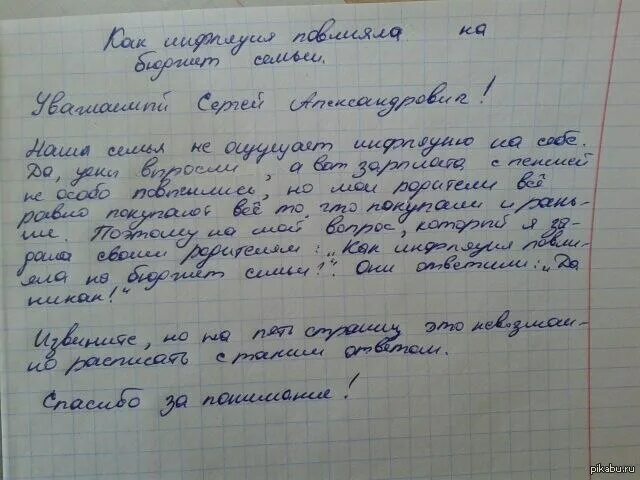 Как инфляция повлияла на
бюджет семьи.
Уважаемый Сергей Александрович!
Наша семья не ощущает инфляцию на себе.
Да, цены выросли, а вот зарплата с пенсией
не особо повысились, но мои родители всё
равно покупают всё то, что покупали и рань-
ше. Поэтому на мой вопрос, который я за-
дала своим родителям: „Как инфляция повли-
яла на бюджет семьи?". Они ответили: „Да
никак!"
Извините, но на пять страниц это невозмож-
но расписать с таким ответом.
Спасибо за понимание!
pikabu.ru